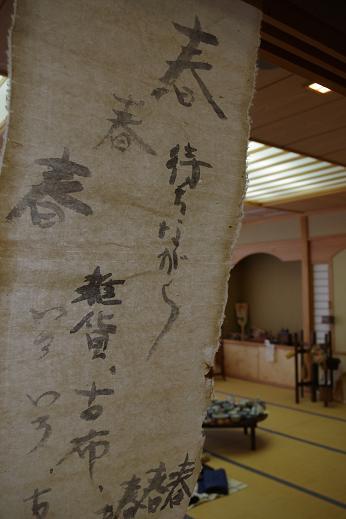 春
春
待ちながら
春
雑貨、古布、
いろいろ
春春春